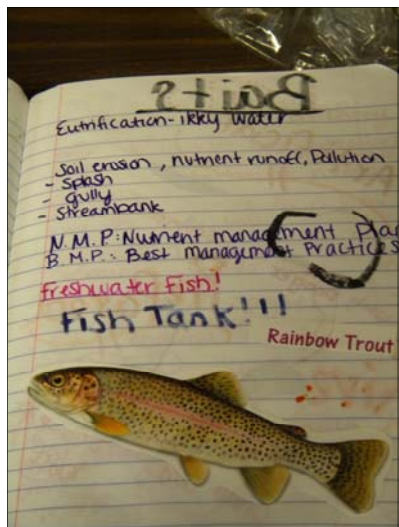 Baits
Eutrification- ikky water
Soil erosion, nutrient runoff, Pollution
- Splash
- gully
- streambank
N.M.P: Nutrient management Pla
B.M.P.: Best management Practices
freshwater Fish!
Fish Tank!!!
Rainbow Trout